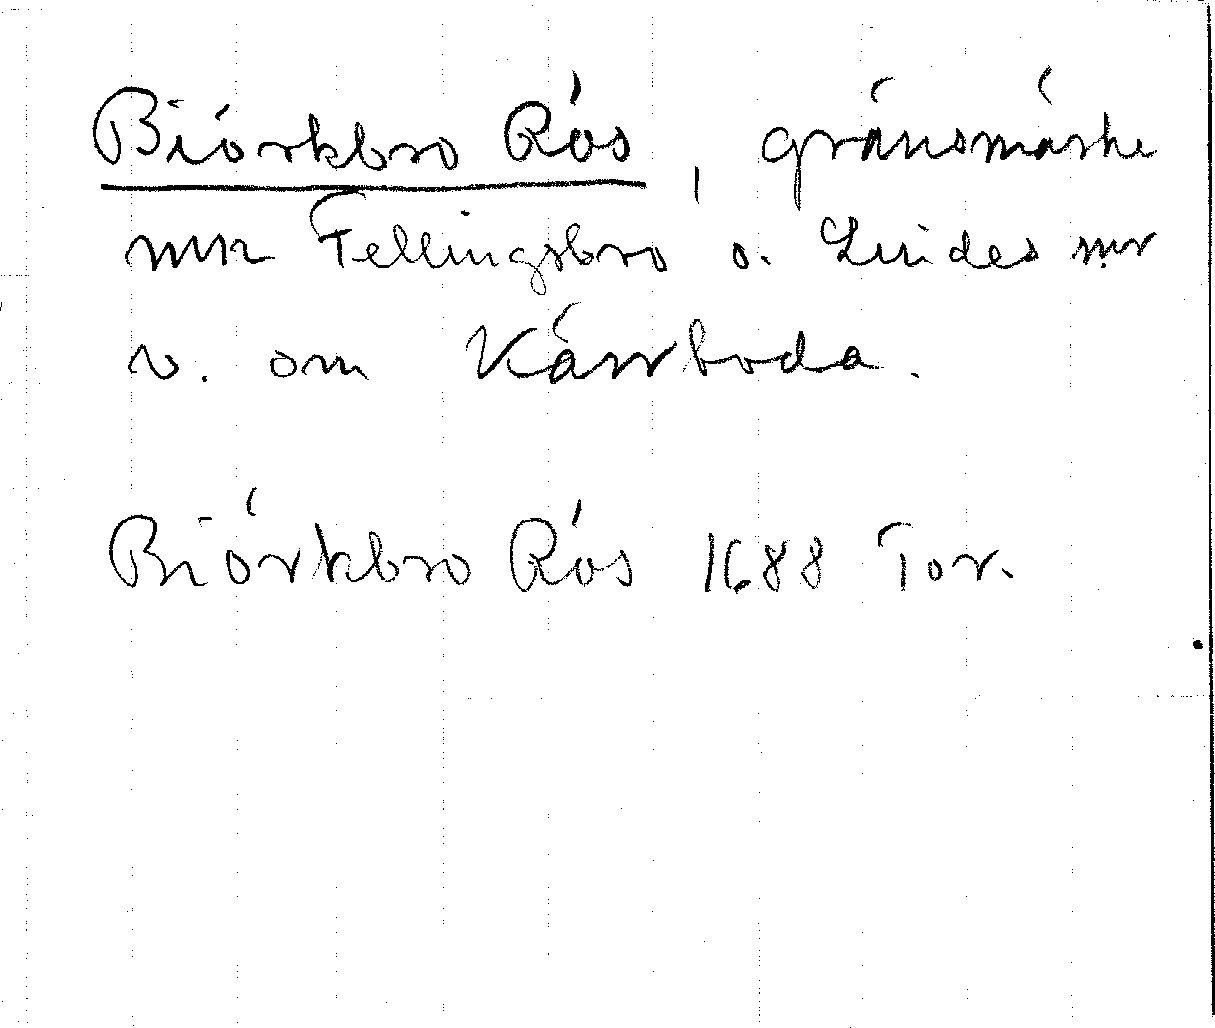 Biörkbro Rös, gränsmärke
mln Fellingsbro o. Lindes snr
v. om Kärrboda.
Biörkbro Rös 1688 Tor.